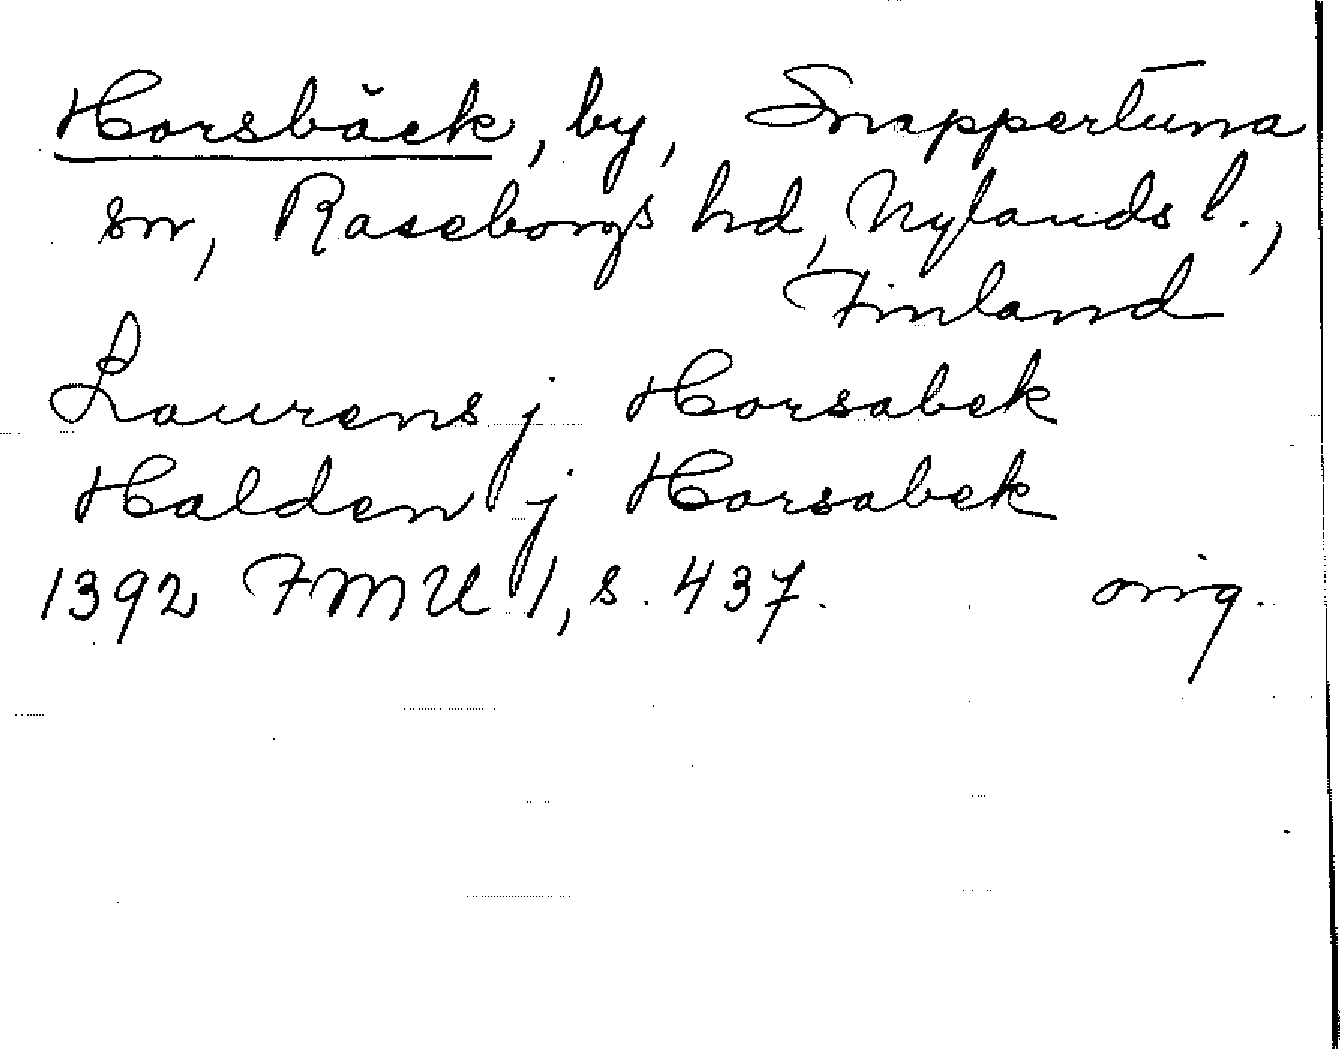 Horsbäck, by, Snappertuna
sn, Raseborgs hd, Nylands l.,
Finland
Laurens j Horsabek
Halden j Horsabek
1392 FMU 1, s. 437. orig.